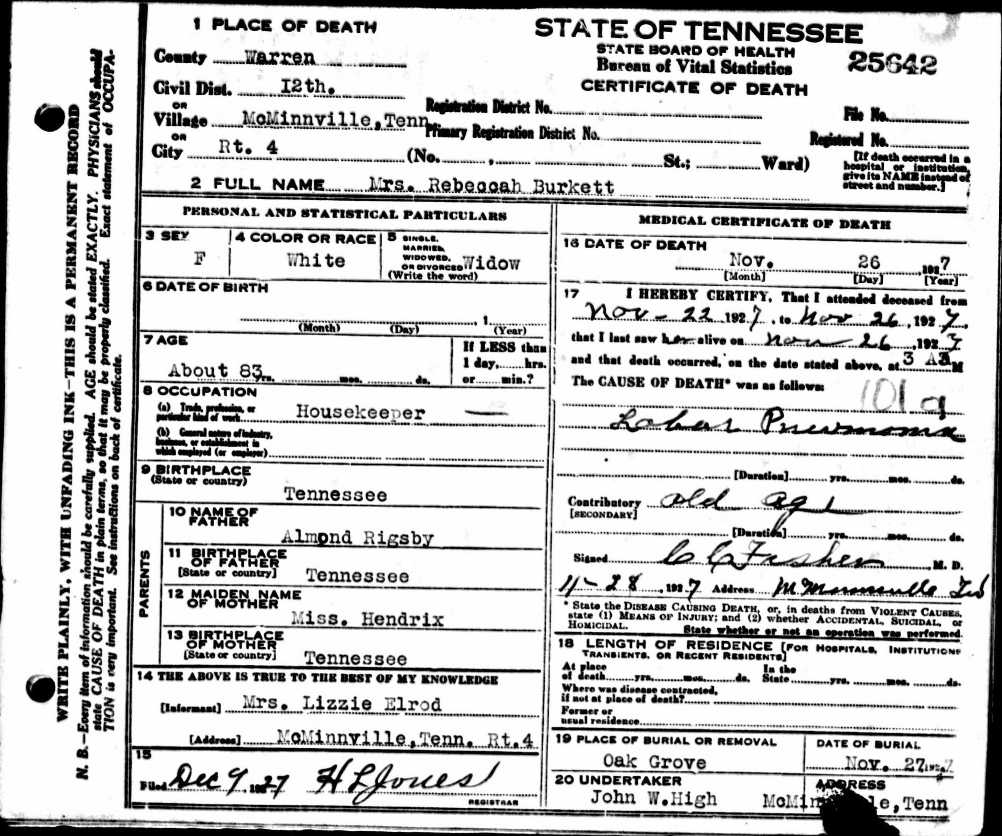 1 PLACE OF DEATH
STATE OF TENNESSEE
STATE BOARD OF HEALTH
Bureau of Vital Statistics
CERTIFICATE OF DEATH
25642
County Warren
Civil Dist. 12th.
OR
Village McMinnville, Tenn
OR
City Rt. 4 (No. , St.; Ward)
Registration District No.
Primary Registration District No.
File No.
Registered No.
[If death occurred in a
hospital or institution,
give its NAME instead of
street and number.]
2 FULL NAME Mrs. Rebeccah Burkett
PERSONAL AND STATISTICAL PARTICULARS
3 SEX
F
4 COLOR OR RACE
White
5 SINGLE,
MARRIED,
WIDOWED,
OR DIVORCED Widow
(Write the word)
6 DATE OF BIRTH
, 1
(Month) (Day) (Year)
7 AGE
About 83 yrs. mos. ds.
If LESS than
1 day, hrs.
or min.?
8 OCCUPATION
(a) Trade, profession, or
particular kind of work Housekeeper —
(b) General nature of industry,
business, or establishment in
which employed (or employer)
9 BIRTHPLACE
(State or country)
Tennessee
PARENTS
10 NAME OF
FATHER
Almond Rigsby
11 BIRTHPLACE
OF FATHER
[State or country] Tennessee
12 MAIDEN NAME
OF MOTHER
Miss. Hendrix
13 BIRTHPLACE
OF MOTHER
(State or country) Tennessee
14 THE ABOVE IS TRUE TO THE BEST OF MY KNOWLEDGE
[Informant] Mrs. Lizzie Elrod
[Address] McMinnville, Tenn. Rt.4
15
Filed Dec 9, 1927 H L Jones
REGISTRAR
MEDICAL CERTIFICATE OF DEATH
16 DATE OF DEATH
Nov. 26 1927
[Month] [Day] [Year]
17 I HEREBY CERTIFY, That I attended deceased from
Nov - 22 1927, to Nov 26, 1927,
that I last saw her alive on Nov 26, 1927
and that death occurred, on the date stated above, at 3 A M
The CAUSE OF DEATH* was as follows:
101 a
Lobar Pneumonia
[Duration] yrs. mos. ds.
Contributory old age
[SECONDARY]
[Duration] yrs. mos. ds.
Signed C C Fisher M. D.
11-28, 1927 Address McMinnville
* State the DISEASE CAUSING DEATH, or, in deaths from VIOLENT CAUSES,
state (1) MEANS OF INJURY; and (2) whether ACCIDENTAL, SUICIDAL, or
HOMICIDAL. State whether or not an operation was performed.
18 LENGTH OF RESIDENCE (FOR HOSPITALS, INSTITUTIONS
TRANSIENTS, OR RECENT RESIDENTS]
At place In the
of death yrs. mos. ds. State yrs. mos. ds.
Where was disease contracted,
if not at place of death?
Former or
usual residence
19 PLACE OF BURIAL OR REMOVAL
Oak Grove
DATE OF BURIAL
Nov. 27 1927
20 UNDERTAKER
John W. High
ADDRESS
McMinnville, Tenn
WRITE PLAINLY, WITH UNFADING INK—THIS IS A PERMANENT RECORD
N. B.—Every item of information should be carefully supplied. AGE should be stated EXACTLY. PHYSICIANS should
state CAUSE OF DEATH in plain terms, so that it may be properly classified. Exact statement of OCCUPA-
TION is very important. See instructions on back of certificate.